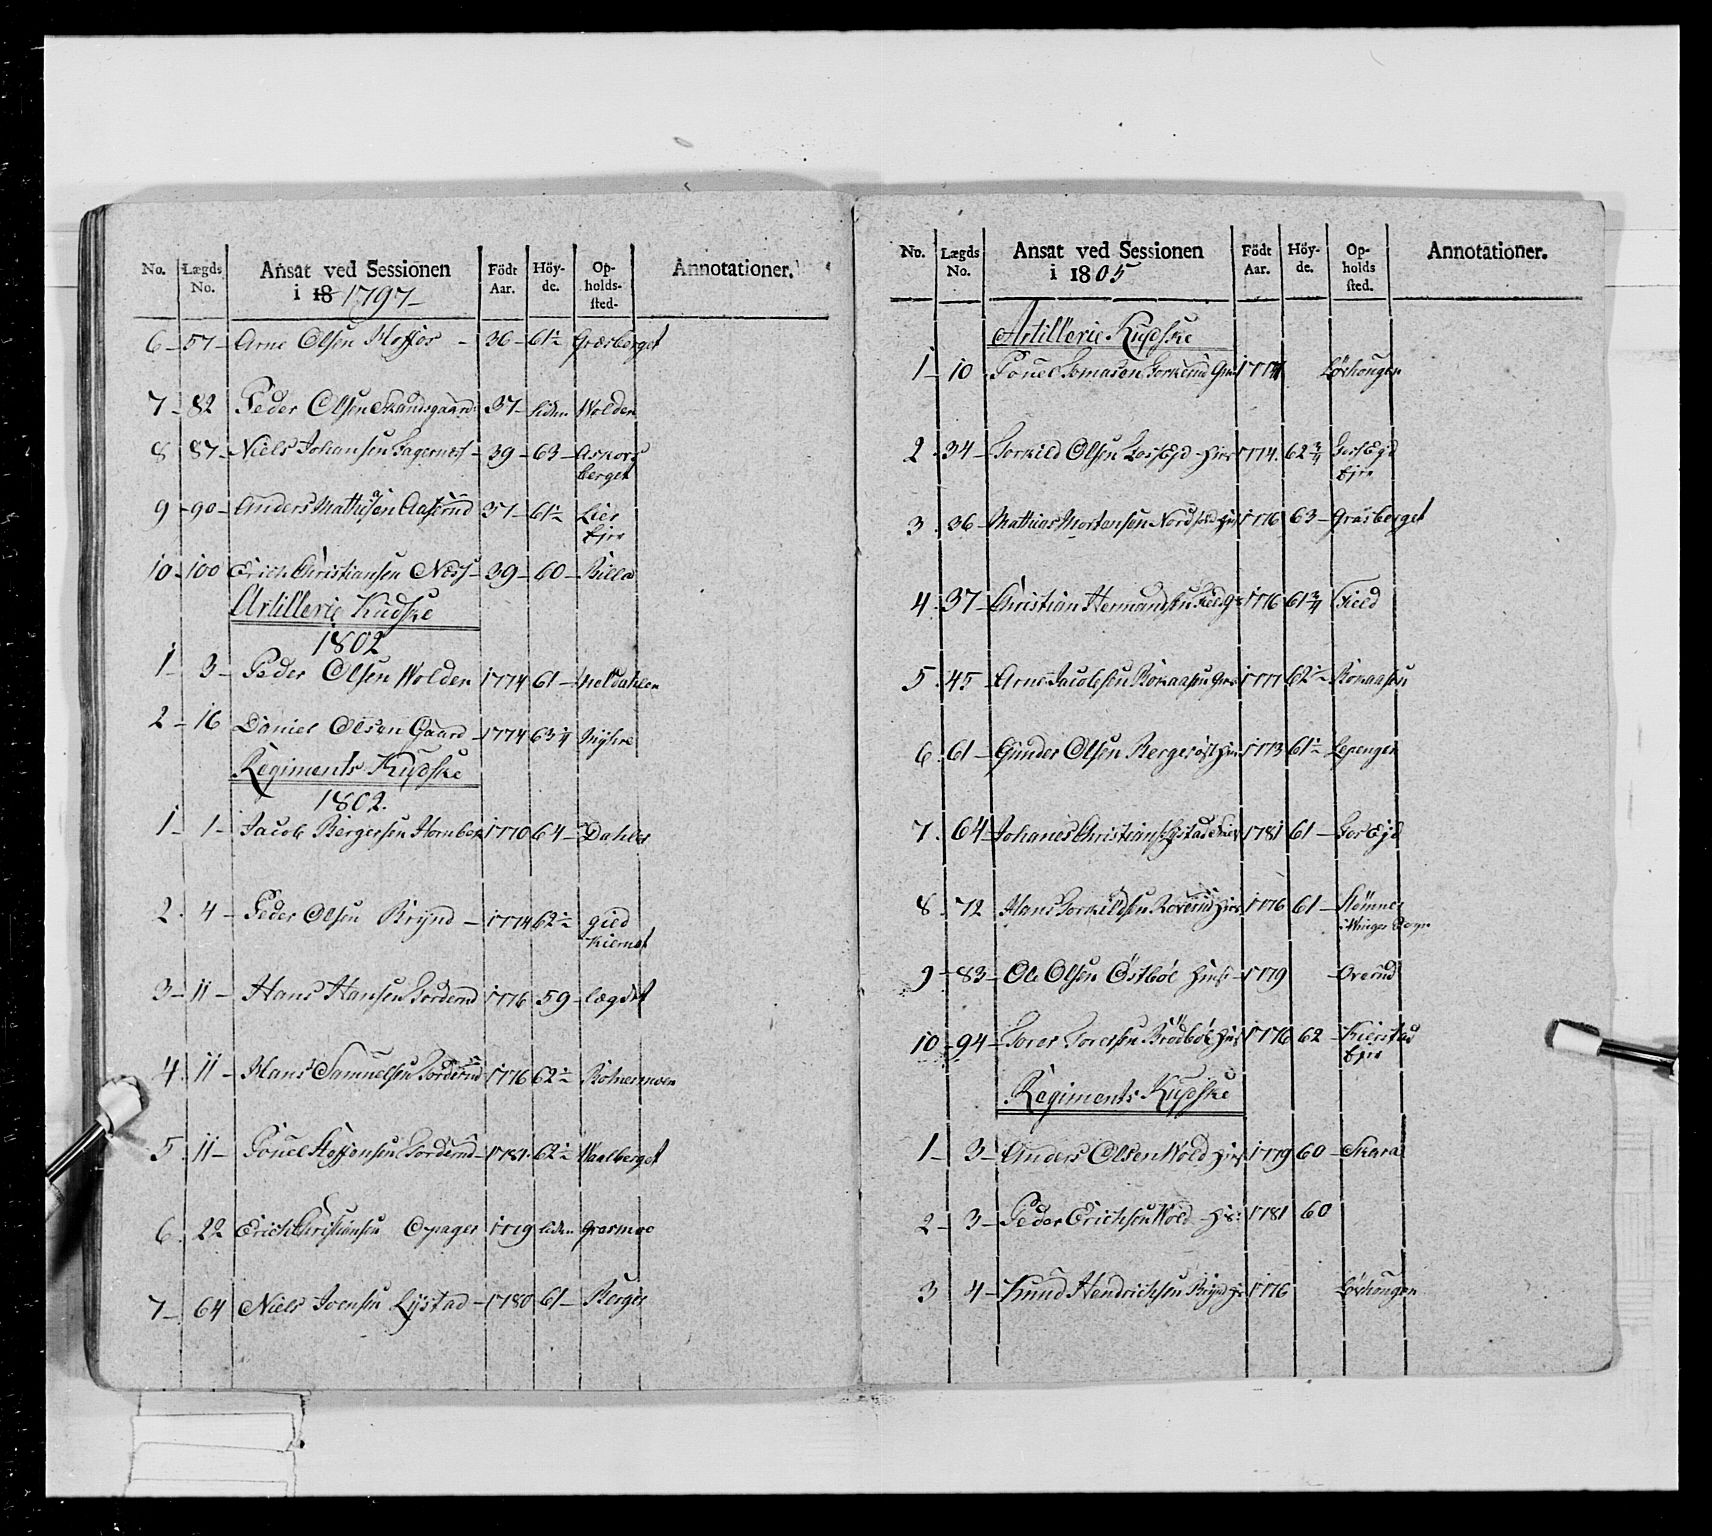 No. Lægds No. Ansat ved Sessionen i 18 1797 Födt Aar. Höy-de. Op-holds-sted. Annotationer.
6 – 57 – Arne Olsen Moffior – 36 – 61½ Græsberget
7 – 82 Peder Olsen Strandsgaard 37 – liden Wolden
8 87 – Niels Johansen Fagernæs – 39 – 63 – Askors
berget
9 – 90 – Anders Mathisen Aaserud 37 – 61½ Lier
Ejre
10 – 100 Erich Christiansen Næss – 39 – 60 – Billa
Artillerie Kudske
1802
1 – 3 – Peder Olsen Wolden 1774 61 – Meldahlen
2 – 16 Daniel Olsen Gaard – 1774 63¼ Myhre
Regiments Kudske
1802.
1 – 1 – Jacob Bergersen Hornbek 1770 64 – Dahler
2 . 4 – Peder Olsen Brynd – 1774 62½ gied
Kiernet
3 – 11 – Hans Hansen Torderud 1776 59 – lægdet
4 . 11 – Hans Samuelsen Torderud 1776 62½ Rotnemoen
5 . 11 – Povel Steffensen Torderud – 1781 . 62½ Waalberget
6 . 22 Erich Christiansen Opager 1779 liden Grasmoe
7 – 64 Niels Joensen Lystad – 1780 61 – Berger
No. Lægds No. Ansat ved Sessionen i 1805 Födt Aar. Höy-de. Op-holds sted. Annotationer.
Artillerie Kudske
1 – 10 – Povel Tomasen Torkerud 1774 Lövhougen
2 . 34 – Torkild Olsen 1774 . 62¾
Ejre
3 . 36 – Mathias Mortensen 1776 63 – Grasberget
4 . 37 – Christian Hermandsen 1776 61¾ Field
5 . 45 – Arne Jacobsen Rönaasen 1777 62½ Rönaasen
6 . 61 – Gunder Olsen Bergersöst 1773 61½ Lepenger
7 . 64 – Johanes Christians Lystad 1781 61 –
8 . 72 Hans Torkildsen Roverud 1776 61 –
i Winger Sogn
9 – 83 – Ole Olsen Östböl 1779 – Overud
10 – 94 – Torer Torersen Brödböl 1776 62 – Kierstad
Ejre
Regiments Kudske
1 – 3 – Anders Olsen Wold 1779 60 – Skara
2 – 3 – Peder Erichsen Wold 1781 60
3 4 – Knud Hendrichsen Brynd 1776 Lövhougen